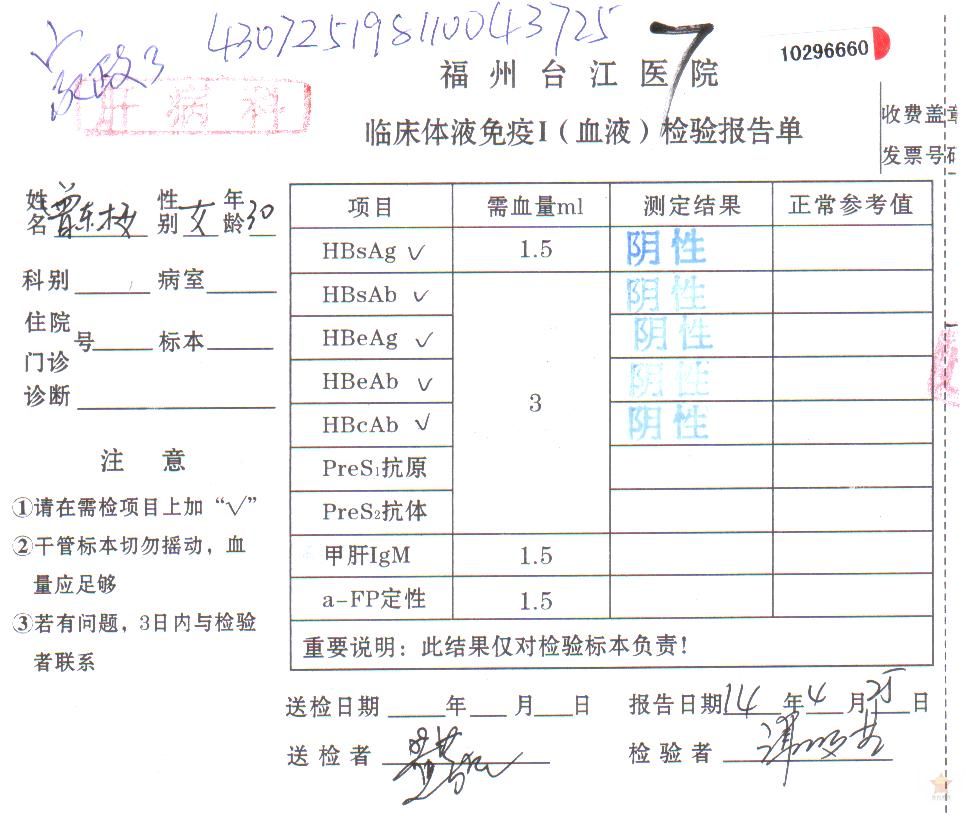 家政3 430725198110043725
7
10296660
肝病科
福州台江医院
临床体液免疫I（血液）检验报告单
收费盖章
发票号码
姓名 曾东梅 性别 女 年龄 30
科别 病室
住院
门诊 号 标本
诊断
注 意
①请在需检项目上加“√”
②干管标本切勿摇动，血
量应足够
③若有问题，3日内与检验
者联系
项目 需血量ml 测定结果 正常参考值
HBsAg √ 1.5 阴性
HBsAb √ 阴性
HBeAg √ 阴性
HBeAb √ 3 阴性
HBcAb √ 阴性
PreS₁抗原
PreS₂抗体
甲肝IgM 1.5
a-FP定性 1.5
重要说明：此结果仅对检验标本负责！
送检日期 年 月 日 报告日期 14 年 4 月 25 日
送检者 检验者